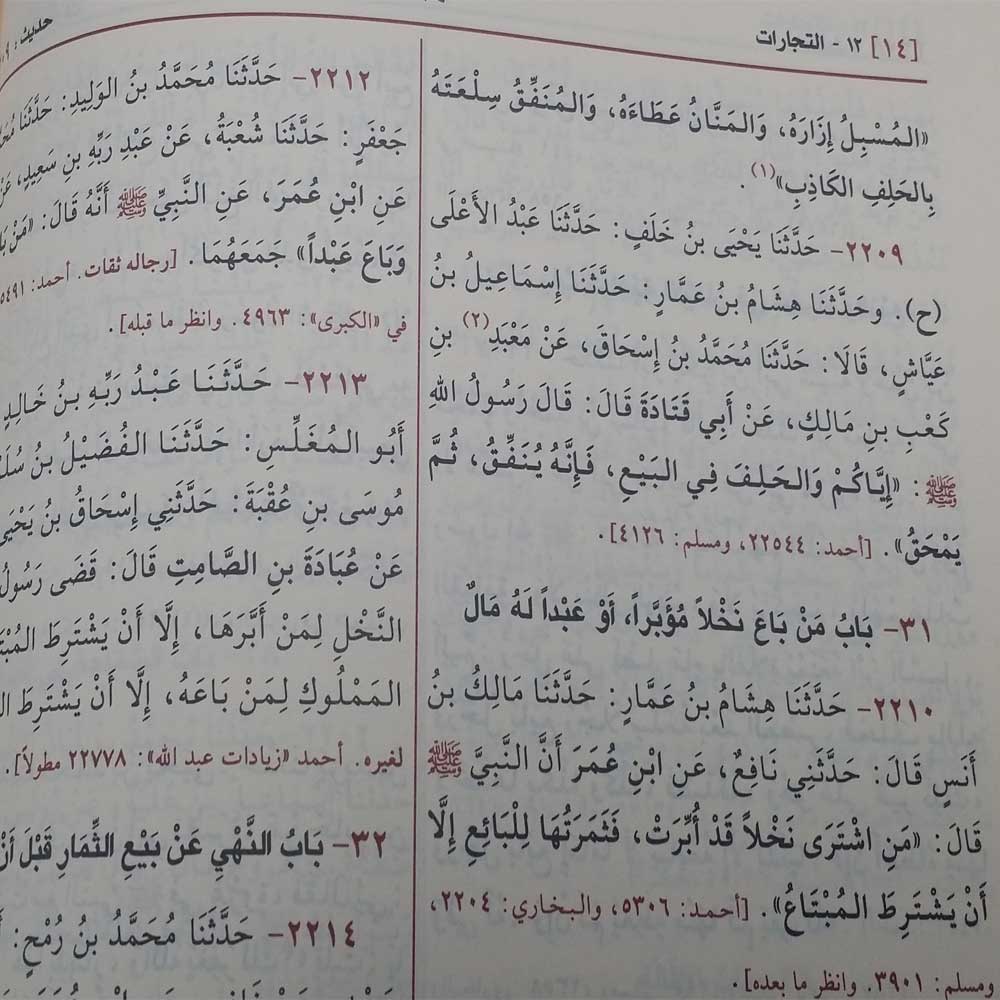 [١٤] ١٢ - التجارات
«المُسْبِلُ إِزَارَهُ، وَالمَنَّانُ عَطَاءَهُ، وَالمُنَفِّقُ سِلْعَتَهُ
بِالحَلِفِ الكَاذِبِ»(١).
٢٢٠٩- حَدَّثَنَا يَحْيَى بنُ خَلَفٍ: حَدَّثَنَا عَبْدُ الأَعْلَى
(ح). وحَدَّثَنَا هِشَامُ بنُ عَمَّارٍ: حَدَّثَنَا إِسْمَاعِيلُ بنُ
عَيَّاشٍ، قَالَا: حَدَّثَنَا مُحَمَّدُ بنُ إِسْحَاقَ، عَنْ مَعْبَدِ(٢) بنِ
كَعْبِ بنِ مَالِكٍ، عَنْ أَبِي قَتَادَةَ قَالَ: قَالَ رَسُولُ اللهِ
ﷺ: «إِيَّاكُمْ وَالحَلِفَ فِي البَيْعِ، فَإِنَّهُ يُنَفِّقُ، ثُمَّ
يَمْحَقُ». [أحمد: ٢٢٥٤٤، ومسلم: ٤١٢٦].
٣١- بَابُ مَنْ بَاعَ نَخْلاً مُؤَبَّراً، أَوْ عَبْداً لَهُ مَالٌ
٢٢١٠- حَدَّثَنَا هِشَامُ بنُ عَمَّارٍ: حَدَّثَنَا مَالِكُ بنُ
أَنَسٍ قَالَ: حَدَّثَنِي نَافِعٌ، عَنِ ابْنِ عُمَرَ أَنَّ النَّبِيَّ ﷺ
قَالَ: «مَنِ اشْتَرَى نَخْلاً قَدْ أُبِّرَتْ، فَثَمَرَتُهَا لِلْبَائِعِ إِلَّا
أَنْ يَشْتَرِطَ المُبْتَاعُ». [أحمد: ٥٣٠٦، والبخاري: ٢٢٠٤،
ومسلم: ٣٩٠١. وانظر ما بعده].
حديث:
٢٢١٢- حَدَّثَنَا مُحَمَّدُ بنُ الوَلِيدِ: حَدَّثَنَا
جَعْفَرٍ: حَدَّثَنَا شُعْبَةُ، عَنْ عَبْدِ رَبِّهِ بنِ سَعِيدٍ،
عَنِ ابْنِ عُمَرَ، عَنِ النَّبِيِّ ﷺ أَنَّهُ قَالَ: «مَنْ
وَبَاعَ عَبْداً» جَمَعَهُمَا. [رجاله ثقات. أحمد: ٥٤٩١
في «الكبرى»: ٤٩٦٣. وانظر ما قبله].
٢٢١٣- حَدَّثَنَا عَبْدُ رَبِّهِ بنُ خَالِدٍ
أَبُو المُغَلِّسِ: حَدَّثَنَا الفُضَيْلُ بنُ
مُوسَى بنِ عُقْبَةَ: حَدَّثَنِي إِسْحَاقُ بنُ يَحْيَى
عَنْ عُبَادَةَ بنِ الصَّامِتِ قَالَ: قَضَى رَسُولُ
النَّخْلِ لِمَنْ أَبَّرَهَا، إِلَّا أَنْ يَشْتَرِطَ
المَمْلُوكِ لِمَنْ بَاعَهُ، إِلَّا أَنْ يَشْتَرِطَ
لغيره. أحمد «زيادات عبد الله»: ٢٢٧٧٨ مطولاً].
٣٢- بَابُ النَّهْيِ عَنْ بَيْعِ الثِّمَارِ قَبْلَ أَنْ
٢٢١٤- حَدَّثَنَا مُحَمَّدُ بنُ رُمْحٍ: